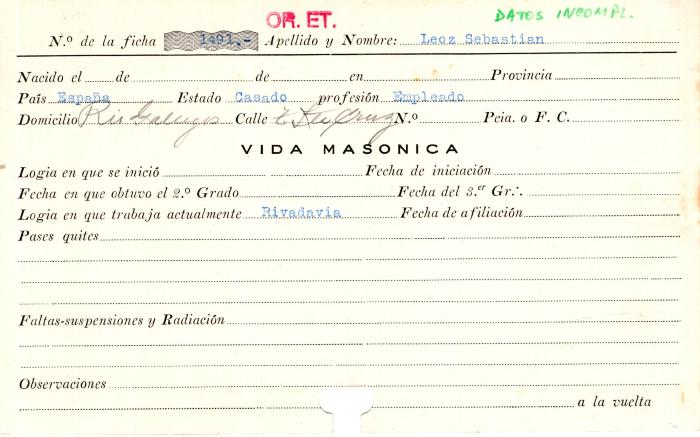 OR. ET. DATOS INCOMPL.
N.º de la ficha 1491.- Apellido y Nombre: Leoz Sebastian
Nacido el de de en Provincia
País España Estado Casado profesión Empleado
Domicilio Rio Gallegos Calle Sta Cruz N.º Pcia. o F. C.
VIDA MASONICA
Logia en que se inició Fecha de iniciación
Fecha en que obtuvo el 2.º Grado Fecha del 3.er Gr∴
Logia en que trabaja actualmente Rivadavia Fecha de afiliación
Pases quites
Faltas-suspensiones y Radiación
Observaciones
a la vuelta